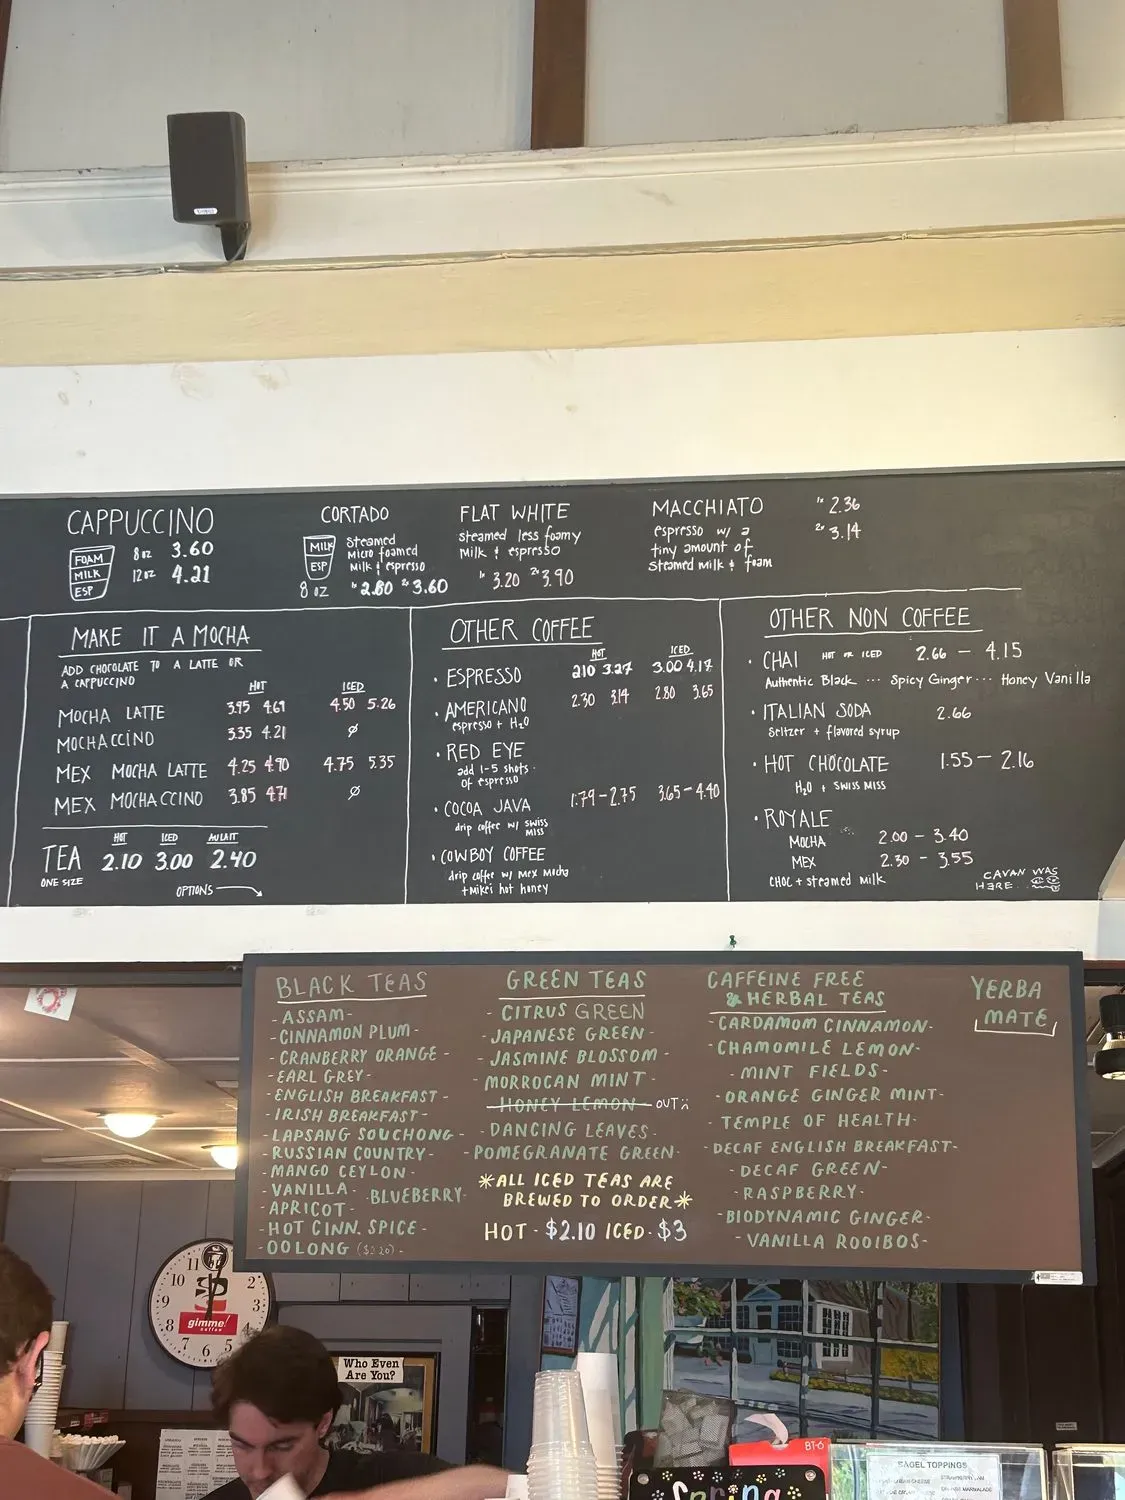 CAPPUCCINO
FOAM
MILK
ESP
8 oz 3.60
12 oz 4.21
CORTADO
MILK
ESP
steamed
micro foamed
milk & espresso
8 OZ 1x 2.80 2x 3.60
FLAT WHITE
steamed less foamy
milk & espresso
1x 3.20 2x 3.90
MACCHIATO
espresso w/ a
tiny amount of
steamed milk & foam
1x 2.36
2x 3.14
MAKE IT A MOCHA
ADD CHOCOLATE TO A LATTE OR
A CAPPUCCINO
HOT ICED
MOCHA LATTE 3.95 4.69 4.50 5.26
MOCHACCINO 3.35 4.21 ø
MEX MOCHA LATTE 4.25 4.90 4.75 5.35
MEX MOCHACCINO 3.85 4.71 ø
HOT ICED AU LAIT
TEA 2.10 3.00 2.40
ONE SIZE
OPTIONS
OTHER COFFEE
HOT ICED
• ESPRESSO 2.10 3.27 3.00 4.17
• AMERICANO 2.30 3.14 2.80 3.65
espresso + H2O
• RED EYE
add 1-5 shots
of espresso
• COCOA JAVA 1.79-2.75 3.65-4.40
drip coffee w/ SWISS
MISS
• COWBOY COFFEE
drip coffee w/ mex mocha
+ Mike's hot honey
OTHER NON COFFEE
• CHAI HOT OR ICED 2.66 - 4.15
Authentic Black ... Spicy Ginger ... Honey Vanilla
• ITALIAN SODA 2.66
Seltzer + flavored syrup
• HOT CHOCOLATE 1.55 - 2.16
H2O + SWISS MISS
• ROYALE
MOCHA 2.00 - 3.40
MEX 2.30 - 3.55
CHOC + steamed milk
CAVAN WAS
HERE
BLACK TEAS
- ASSAM -
- CINNAMON PLUM -
- CRANBERRY ORANGE -
- EARL GREY -
- ENGLISH BREAKFAST -
- IRISH BREAKFAST -
- LAPSANG SOUCHONG -
- RUSSIAN COUNTRY -
- MANGO CEYLON -
- VANILLA - - BLUEBERRY -
- APRICOT -
- HOT CINN. SPICE -
- OOLONG
GREEN TEAS
- CITRUS GREEN
- JAPANESE GREEN -
- JASMINE BLOSSOM -
- MORROCAN MINT -
- HONEY LEMON - OUT
- DANCING LEAVES -
- POMEGRANATE GREEN -
*ALL ICED TEAS ARE
BREWED TO ORDER*
HOT - $2.10 ICED - $3
CAFFEINE FREE
& HERBAL TEAS
- CARDAMOM CINNAMON -
- CHAMOMILE LEMON -
- MINT FIELDS -
- ORANGE GINGER MINT -
- TEMPLE OF HEALTH -
- DECAF ENGLISH BREAKFAST -
- DECAF GREEN -
- RASPBERRY -
- BIODYNAMIC GINGER -
- VANILLA ROOIBOS -
YERBA
MATE
11
10
9
8
7
6
5
4
3
2
gimme!
coffee
Who Even
Are You?
BT-6
Spring
BAGEL TOPPINGS